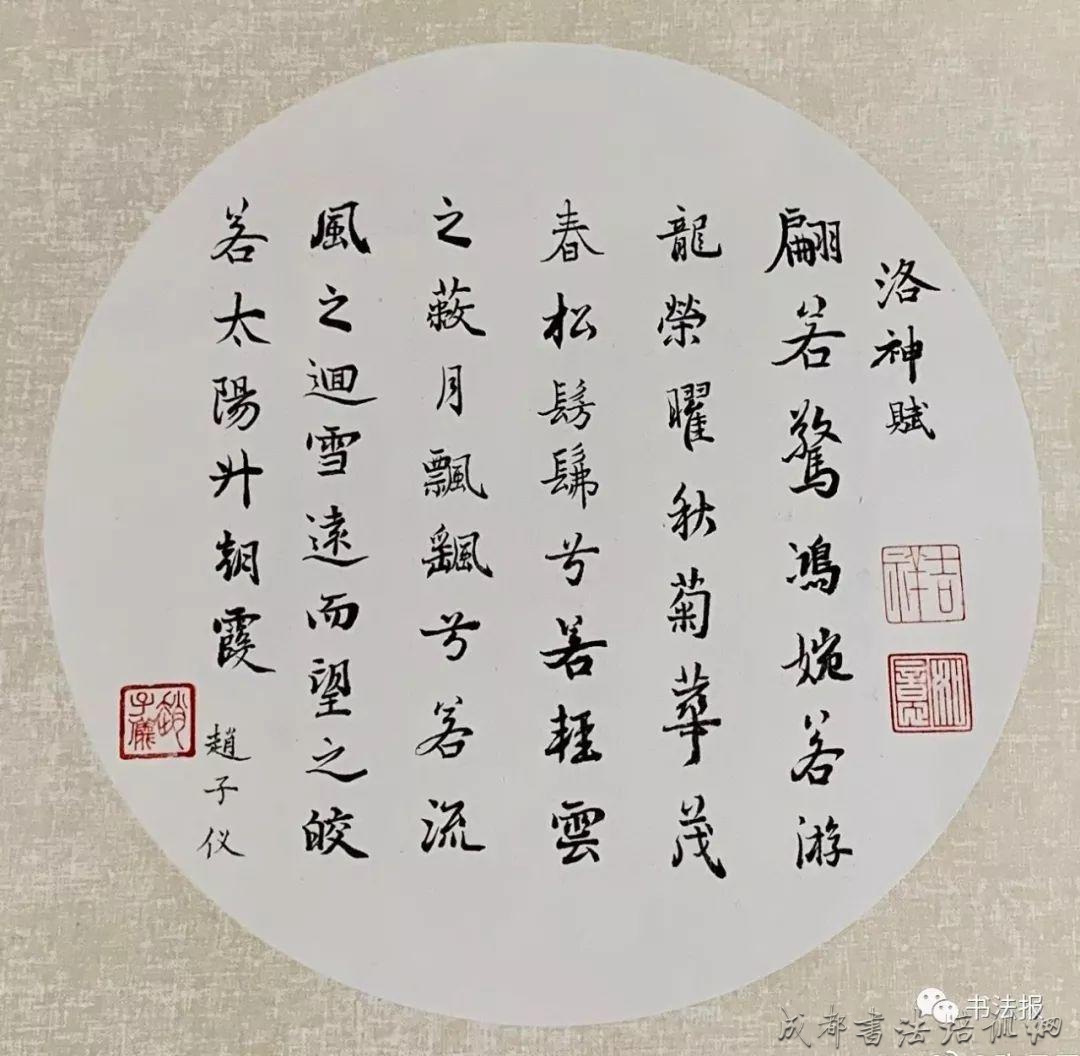 洛神賦
翩若驚鴻婉若游
龍榮曜秋菊華茂
春松髣髴兮若輕雲
之蔽月飄颻兮若流
風之迴雪遠而望之皎
若太陽升朝霞
趙子仪
吉祥
趙子儀
书法报
成都書法培训網